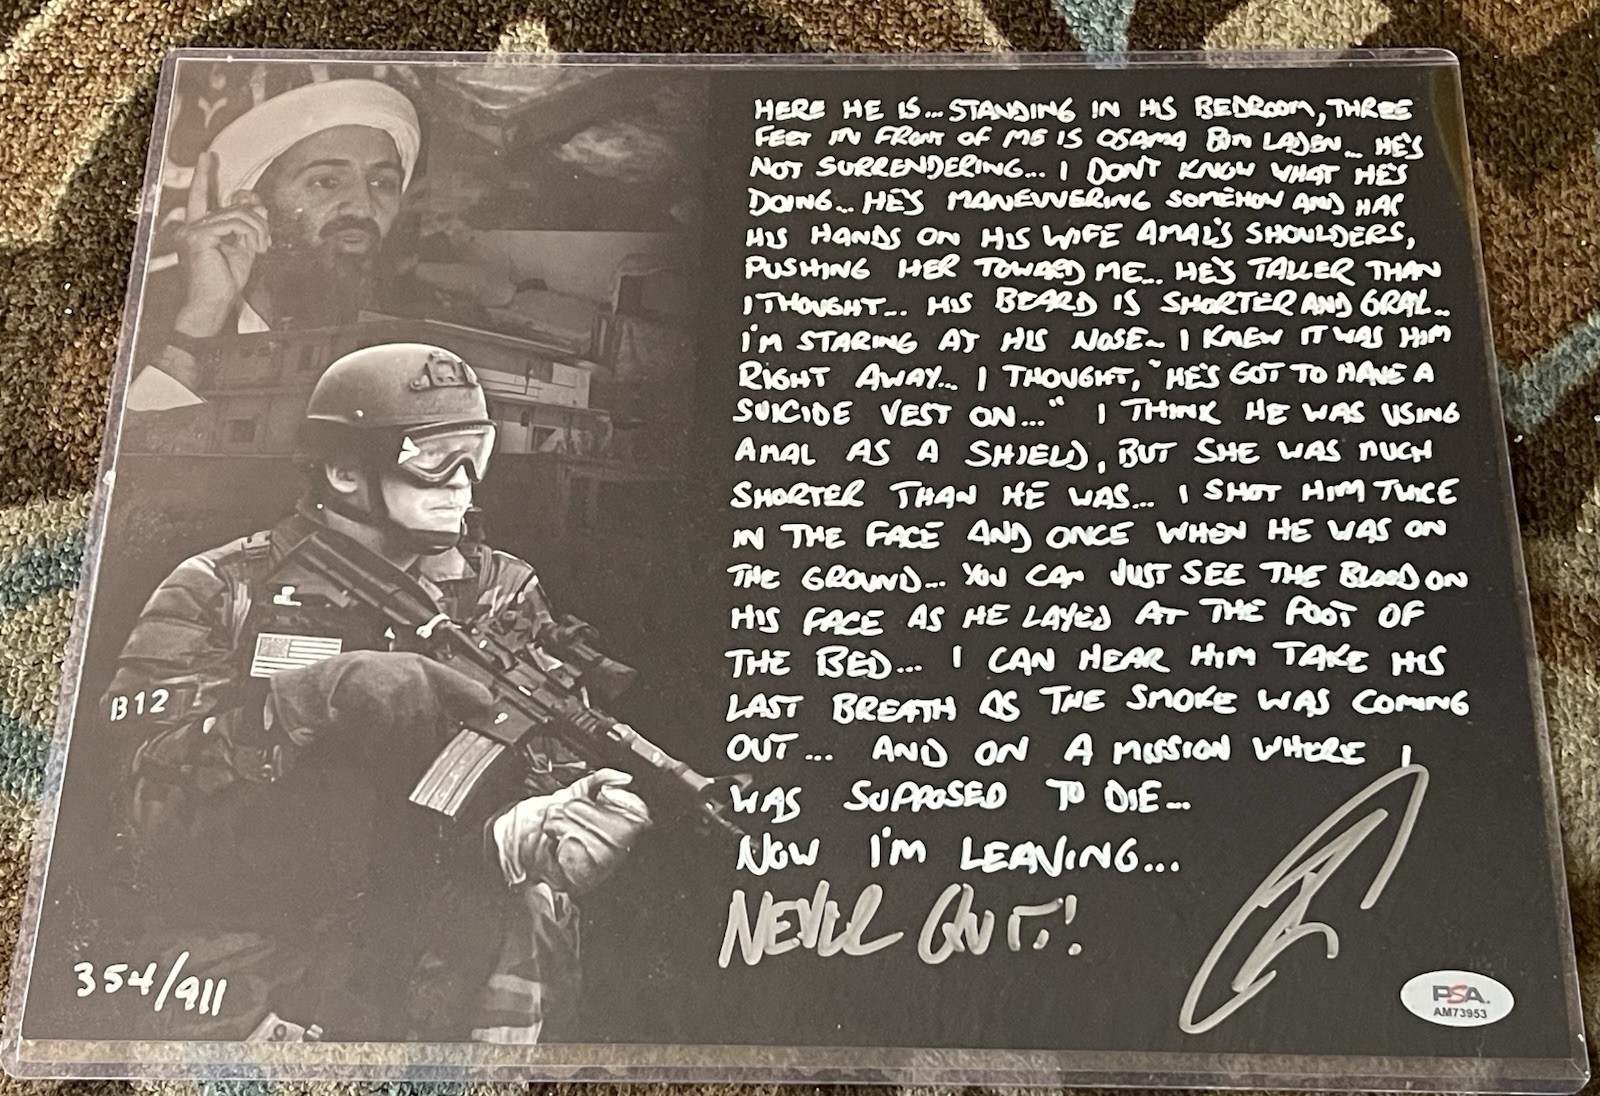 HERE HE IS... STANDING IN HIS BEDROOM, THREE
FEET IN FRONT OF ME IS OSAMA BIN LADEN... HE'S
NOT SURRENDERING... I DON'T KNOW WHAT HE'S
DOING... HE'S MANEUVERING SOMEHOW AND HAS
HIS HANDS ON HIS WIFE AMAL'S SHOULDERS,
PUSHING HER TOWARD ME... HE'S TALLER THAN
I THOUGHT... HIS BEARD IS SHORTER AND GRAY...
I'M STARING AT HIS NOSE... I KNEW IT WAS HIM
RIGHT AWAY... I THOUGHT, "HE'S GOT TO HAVE A
SUICIDE VEST ON..." I THINK HE WAS USING
AMAL AS A SHIELD, BUT SHE WAS MUCH
SHORTER THAN HE WAS... I SHOT HIM TWICE
IN THE FACE AND ONCE WHEN HE WAS ON
THE GROUND... YOU CAN JUST SEE THE BLOOD ON
HIS FACE AS HE LAYED AT THE FOOT OF
THE BED... I CAN HEAR HIM TAKE HIS
LAST BREATH AS THE SMOKE WAS COMING
OUT... AND ON A MISSION WHERE I
WAS SUPPOSED TO DIE...
NOW I'M LEAVING...
NEVER QUIT!!
B12
354/911
PSA
AM73953